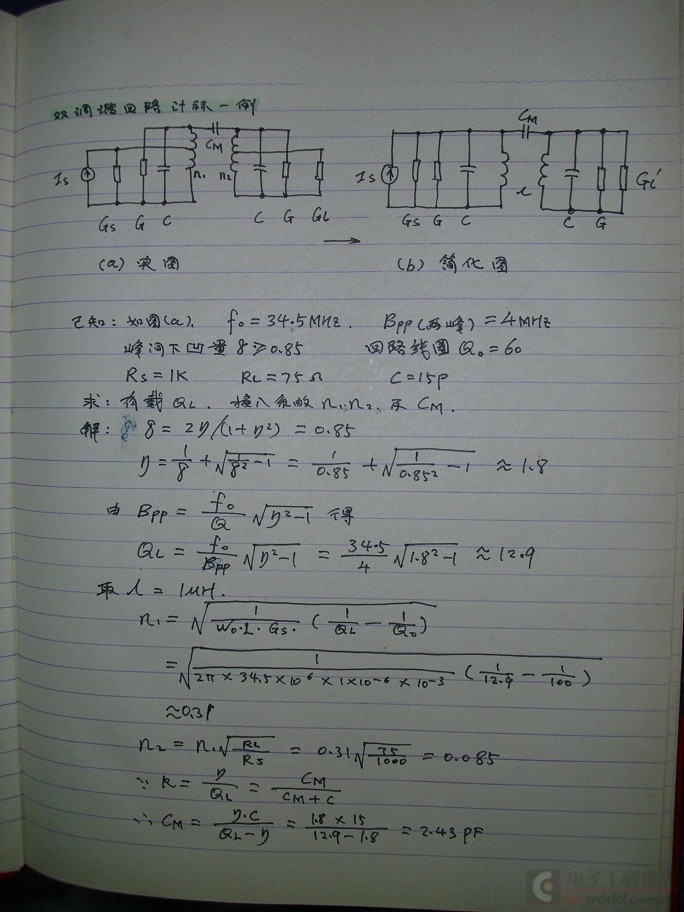 双调谐回路计标一例
Is Gs G C n1 CM n2 C G GL
Is Gs G C CM l C G GL'
(a) 实图
(b) 简化图
已知: 如图(a). f0 = 34.5MHz. Bpp(两峰) = 4MHz
峰间下凹量 g ≥ 0.85 回路线圈 Q0 = 60
Rs = 1K RL = 75Ω C = 15P
求: 有载QL. 接入系数 n1. n2. 及 CM.
解: g = 2η/(1+η²) = 0.85
η = 1/g + √(1/g² − 1) = 1/0.85 + √(1/0.85² − 1) ≈ 1.8
由 Bpp = f0/Q √(η²−1) 得
QL = f0/Bpp √(η²−1) = 34.5/4 √(1.8²−1) ≈ 12.9
取 l = 1μH.
n1 = √(1/(W0·l·Gs·) (1/QL − 1/Q0))
= √(1/(2π × 34.5×10⁶ × 1×10⁻⁶ × 10⁻³) (1/12.9 − 1/100))
≈ 0.31
n2 = n1√(RL/Rs) = 0.31√(75/1000) = 0.085
∵ K = η/QL = CM/(CM+C)
∴ CM = η·C/(QL−η) = 1.8 × 15/(12.9−1.8) = 2.43 PF